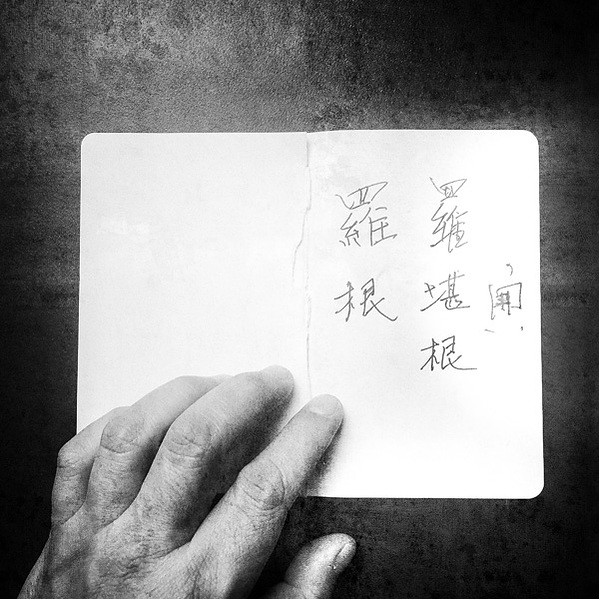 羅堪根
羅根